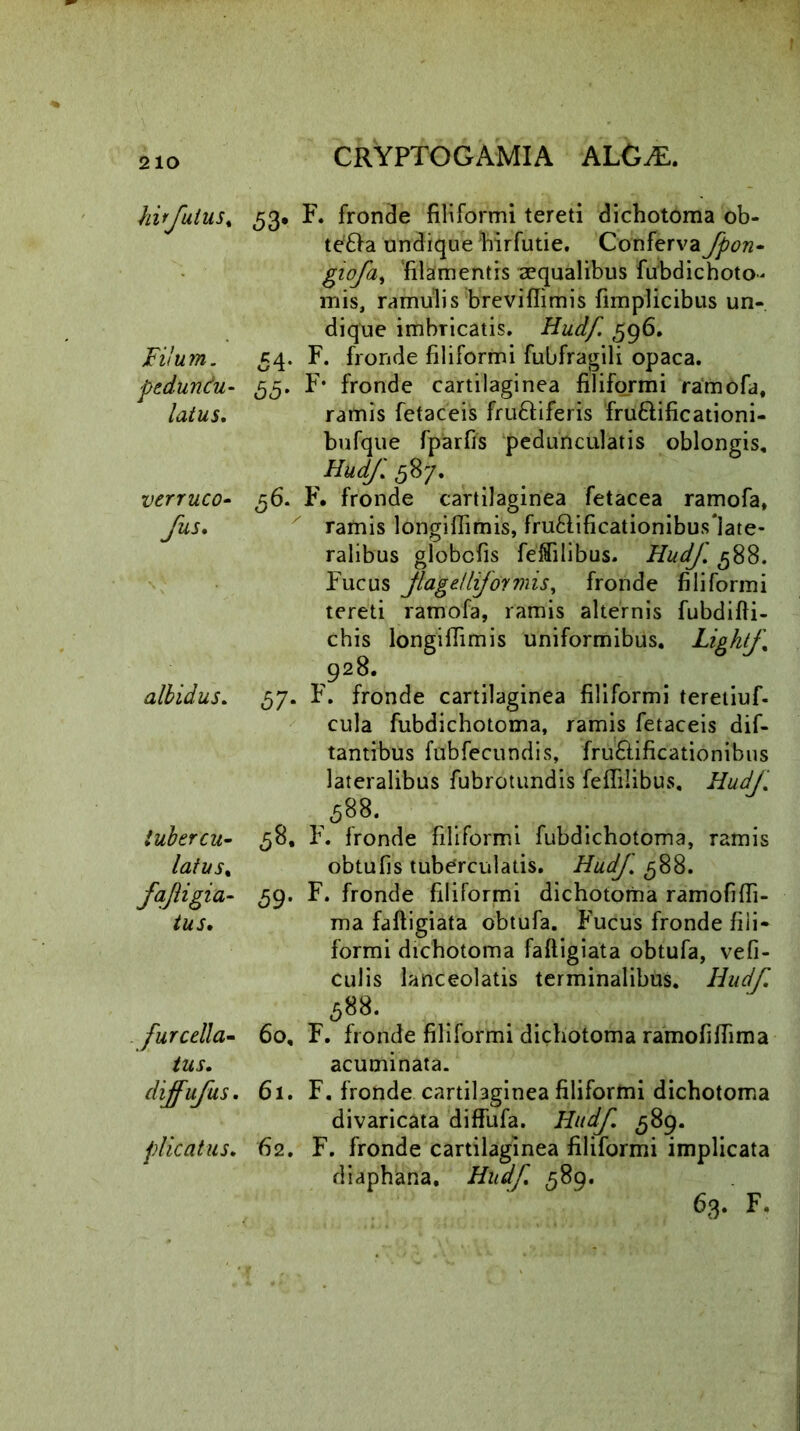 210 CRYPTOGAMIA ALGÆ.
hirſutus, 53. F. fronde filiformi tereti dichotoma ob-
tecta undique hirſutie. Conferva ſpon-
gioſa, filamentis æqualibus ſubdichoto-
mis, ramulis breviſſimis ſimplicibus un-
dique imbricatis. Hudſ. 596.
Filum. 54. F. fronde filiformi ſubfragili opaca.
peduncu- 55. F. fronde cartilaginea filiformi ramoſa,
latus. ramis ſetaceis fructiferis fructificationi-
buſque ſparſis pedunculatis oblongis,
Hudſ. 587.
verruco- 56. F. fronde cartilaginea ſetacea ramoſa,
ſus. ramis longiſſimis, fructificationibus late-
ralibus globoſis ſeſſilibus. Hudſ. 588.
Fucus flagelliformis, fronde filiformi
tereti ramoſa, ramis alternis ſubdiſti-
chis longiſſimis uniformibus. Lightſ.
928.
albidus. 57. F. fronde cartilaginea filiformi teretiuſ-
cula ſubdichotoma, ramis ſetaceis diſ-
tantibus ſubſecundis, fructificationibus
lateralibus ſubrotundis ſeſſilibus. Hudſ.
588.
tubercu- 58. F. fronde filiformi ſubdichotoma, ramis
latus, obtuſis tuberculatis. Hudſ. 588.
faſtigia- 59. F. fronde filiformi dichotoma ramoſiſſi-
tus. ma faſtigiata obtuſa. Fucus fronde fili-
formi dichotoma faſtigiata obtuſa, veſi-
culis lanceolatis terminalibus. Hudſ.
588.
furcella- 60. F. fronde filiformi dichotoma ramoſiſſima
tus. acuminata.
diffuſus. 61. F. fronde cartilaginea filiformi dichotoma
divaricata diffuſa. Hudſ. 589.
plicatus. 62. F. fronde cartilaginea filiformi implicata
diaphana. Hudſ. 589.
63. F.